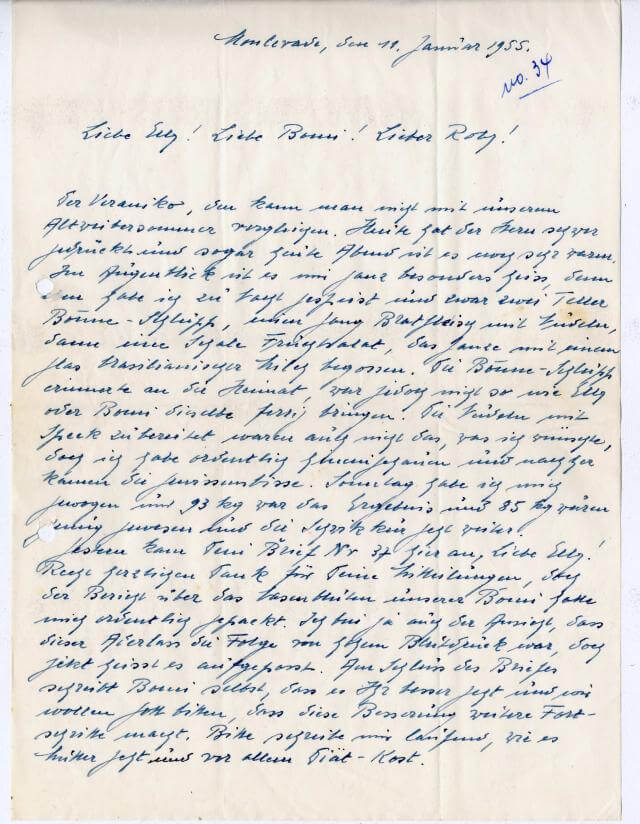 Monlevade, den 11. Januar 1955.
no. 34
Liebe Elly! Liebe Bomi! Lieber Roby!
Der Veraniko, den kann man nicht mit unserem
Altweibersommer vergleichen. Heute hat der Herr schwer
gedrückt und sogar heute Abend ist es noch sehr warm.
Im Augenblick ist es mir ganz besonders heiss, denn
habe ich zu Nacht gespeist und zwar zwei Teller
Bounne-Schlupp, einen Jang Bratfleisch mit Nudeln,
dann eine Schale Fruchtsalat, das Ganze mit einem
Glas brasilianischer Milch begossen. Die Bounne-Schlupp
erinnerte an die Heimat, war jedoch nicht so wie Elly
oder Bomi dieselbe fertig bringen. Die Nudeln mit
Speck zubereitet waren auch nicht das, was ich wünschte,
doch ich habe ordentlich hineingehauen und nachher
kamen die Gewissensbisse. Sonntag habe ich mich
gewogen und 93 kg war das Ergebnis und 85 kg wären
genug gewesen und die geht weiter.
Gestern kam Dein Brief Nr 37 hier an, liebe Elly!
Recht herzlichen Dank für Deine Mitteilungen, doch
der Bericht über das Nasenbluten unserer Bomi hatte
mich ordentlich gepackt. Ich bin ja auch der Ansicht, dass
dieser Aderlass die Folge von hohem Blutdruck war, doch
jetzt heisst es aufgepasst. Am Schluss des Briefes
schreibt Bomi selbst, dass es Ihr besser geht und wir
wollen Gott bitten, dass diese Besserung weitere Fort-
schritte macht. Bitte schreibe mir laufend, wie es
Mutter geht und vor allem Diät-Kost.